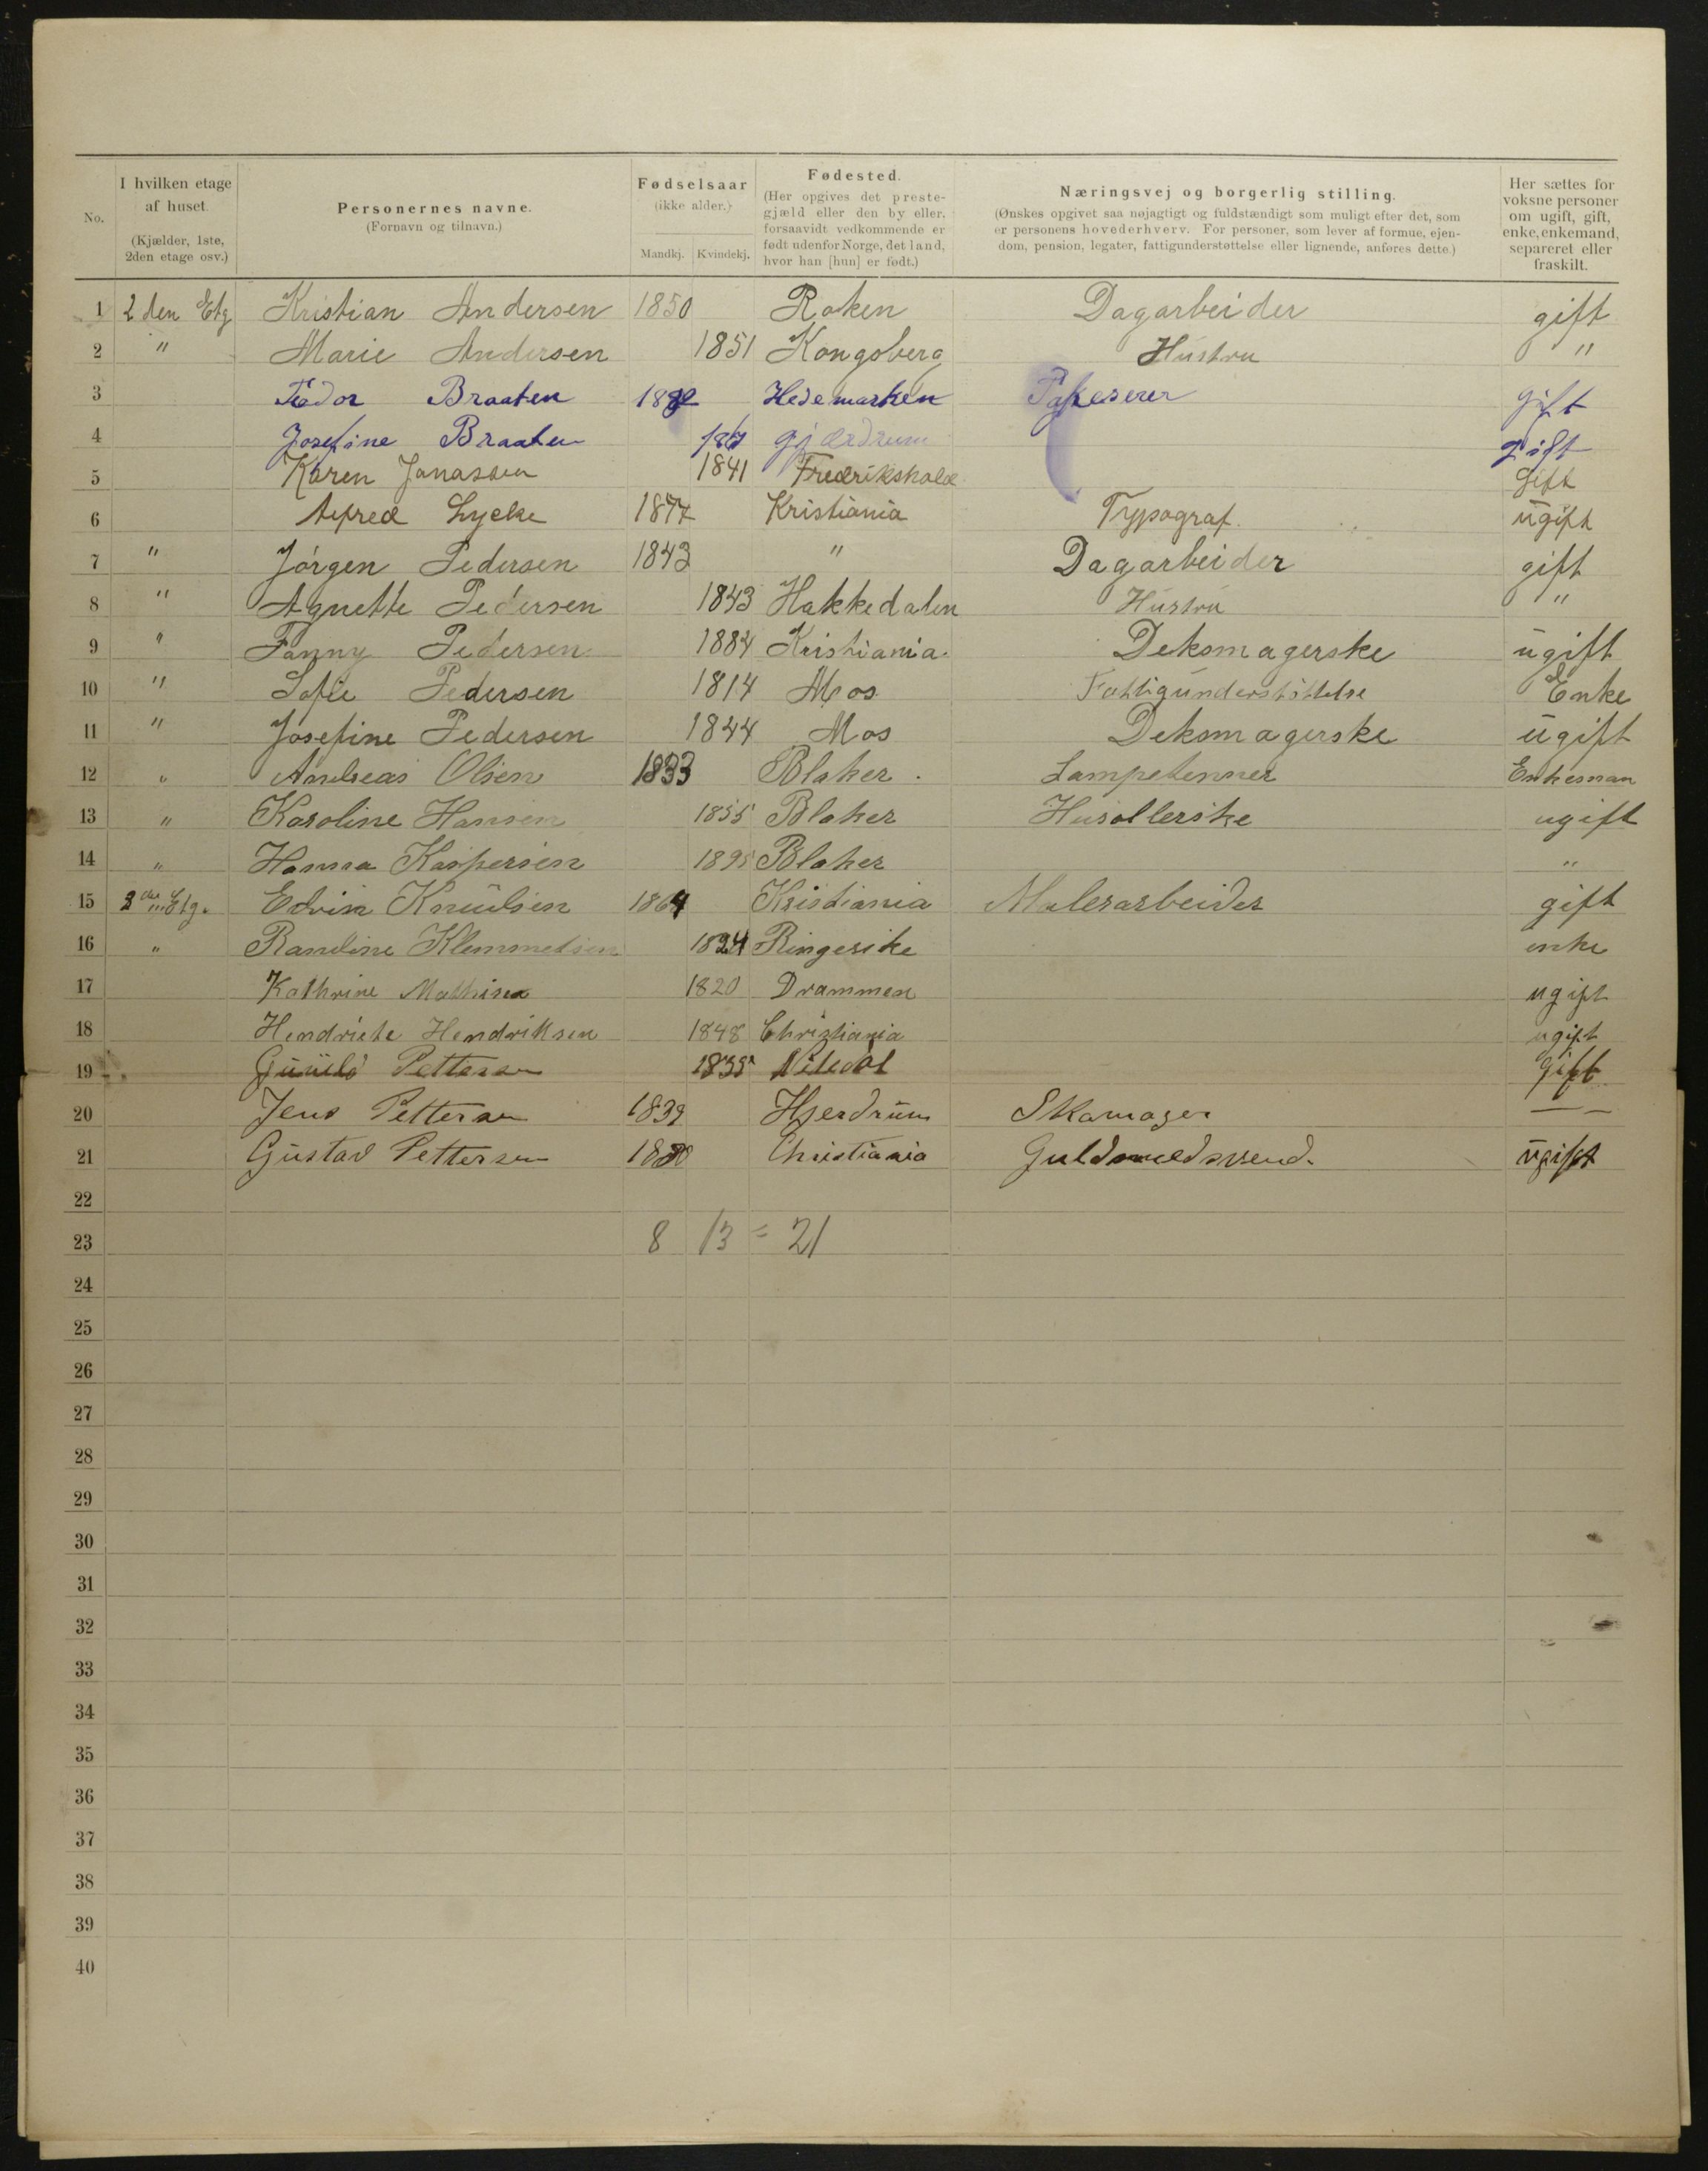 No.
I hvilken etage af huset.
(Kjælder, 1ste, 2den etage osv.)
Personernes navne.
(Fornavn og tilnavn.)
Fødselsaar
(ikke alder.)
Mandkj. Kvindekj.
Fødested.
(Her opgives det preste-
gjæld eller den by eller,
forsaavidt vedkommende er
født udenfor Norge, det land,
hvor han [hun] er født.)
Næringsvej og borgerlig stilling.
(Ønskes opgivet saa nøjagtigt og fuldstændigt som muligt efter det, som
er personens hovederhverv. For personer, som lever af formue, ejen-
dom, pension, legater, fattigunderstøttelse eller lignende, anføres dette.)
Her sættes for
voksne personer
om ugift, gift,
enke, enkemand,
separeret eller
fraskilt.
1 2 den Etg Kristian Andersen 1850 Røken Dagarbeider gift
2 " Marie Andersen 1851 Kongsberg Hustru "
3 Braaten Hedemarken gift
4 Josefine Braaten gjærdrum gift
5 Karen Jonassen 1841 Fredrikshald Gift
6 Alfred Lycke 1877 Kristiania Typograf. ugift
7 " Jørgen Pedersen 1843 " Dagarbeider gift
8 " Agnette Pedersen 1843 Hakkedalen Hustru "
9 " Fanny Pedersen 1884 Kristiania. Deksmagerske ugift
10 " Sofie Pedersen 1814 Mos Fattigunderstøttelse Enke
11 " Josefine Pedersen 1844 Mos Deksmagerske ugift
12 " Andreas Olsen 1833 Blaker. Lampetenner Enkeman
13 " Karoline Hansen 1855 Blaker Husollerske ugift
14 " Hanna Kaspersen 1895 Blaker "
15 Etg. Edvin Knudsen 1864 Kristiania Malerarbeider gift
16 " Randine Klemmetsen 1824 Ringerike enke
17 Kathrine Mathisen 1820 Drammen ugift
18 Hendriete Hendriksen 1848 Christiania ugift
19 Pettersen 1835 Nitedal gift
20 Jens Pettersen 1839 Hjerdrum Skomager — —
21 Gustav Pettersen Christiania Guldsmedsvend. ugift
22
23 8 13 = 21
24
25
26
27
28
29
30
31
32
33
34
35
36
37
38
39
40